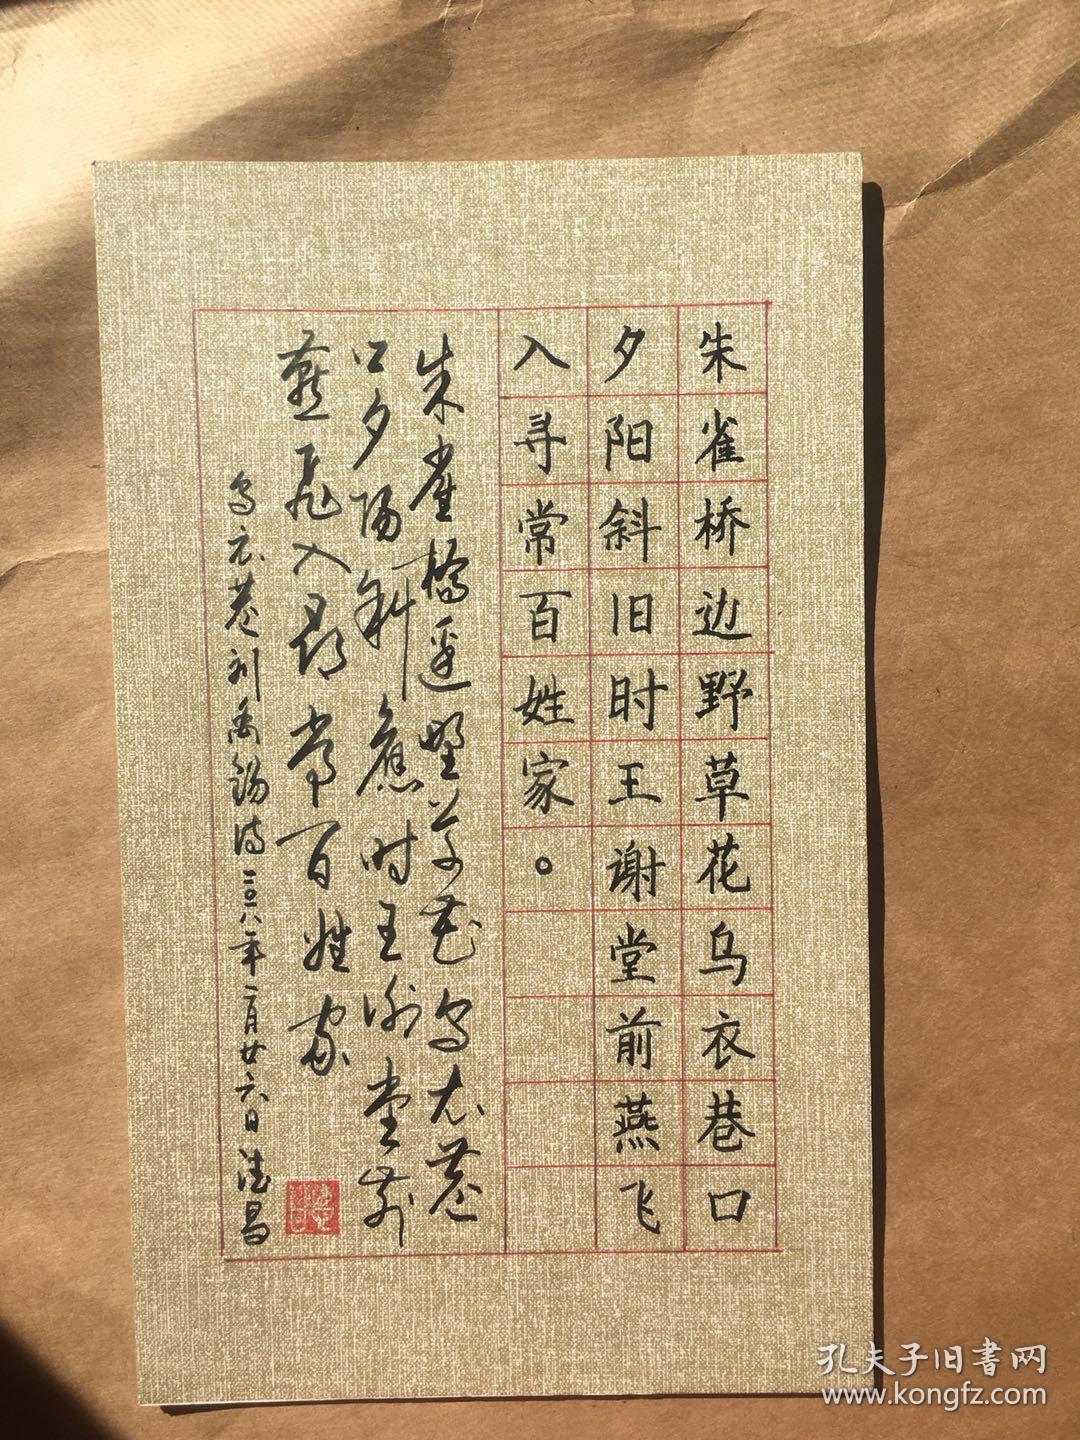 朱雀桥边野草花乌衣巷口
夕阳斜旧时王谢堂前燕飞
入寻常百姓家。
朱雀橋邊野草花乌衣巷
口夕陽斜舊时王谢堂前
燕飛入尋常百姓家
乌衣巷刘禹錫诗二〇一八年一月廿六日德昌
孔夫子旧書网
www.kongfz.com